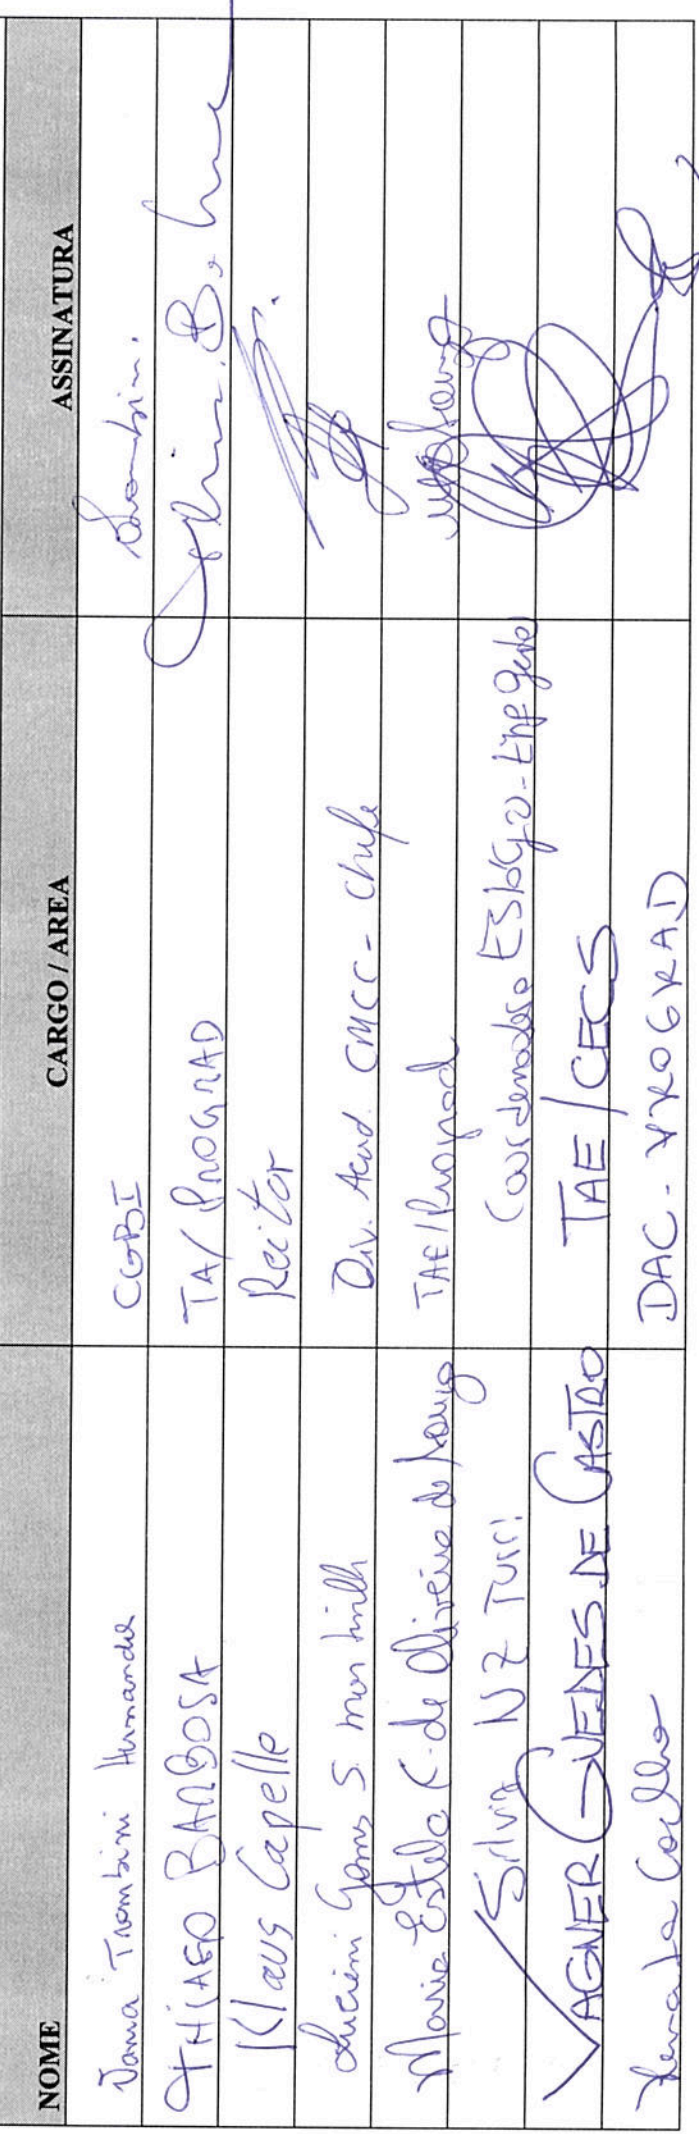 NOME CARGO / AREA ASSINATURA
Vania Trombini Hernandes CGBI Trombini.
THIAGO BARBOSA TA/ PROGRAD
Klaus Capelle Reitor
Lucieni Gomes S. Martinelli Div. Acad. CMCC - Chefe
Maria Estela C. de Oliveira de Souza TAE/Prograd
Silvia NZ Turri Coordenadora Estágio - Eng Gestão
VAGNER GUEDES DE CASTRO TAE / CECS
Renata Coelho DAC - PROGRAD